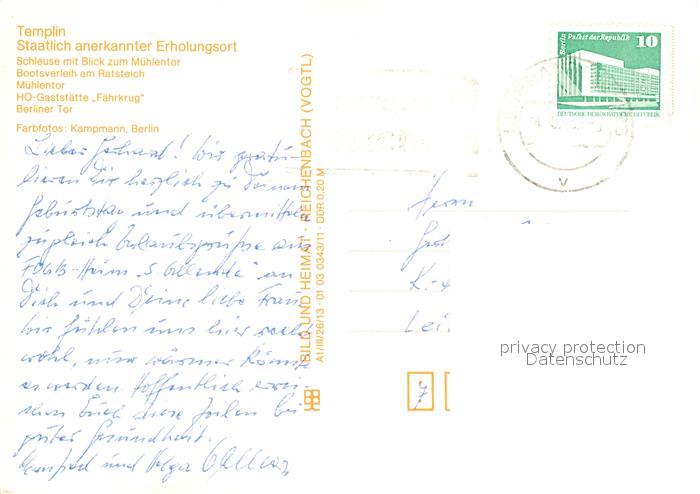 Templin
Staatlich anerkannter Erholungsort
Schleuse mit Blick zum Mühlentor
Bootsverleih am Ratsteich
Mühlentor
HO-Gaststätte „Fährkrug"
Berliner Tor
Farbfotos: Kampmann, Berlin
Lieber Gerhard! Wir gratu-
lieren Dir herzlich zu Deinem
Geburtstag und übermitteln
zugleich Urlaubsgrüße aus
FDGB-Heim „S. Allende" an
Dich und Deine liebe Frau
Wir fühlen uns hier recht
wohl, nur wärmer könnte
es werden. Hoffentlich errei-
chen Euch diese Zeilen bei
guter Gesundheit.
Manfred und Helga
BILD UND HEIMAT · REICHENBACH (VOGTL)
A1/III/26/13 · 01 03 0343/11 · DDR 0,20 M
Berlin Palast der Republik
10
DEUTSCHE DEMOKRATISCHE REPUBLIK
Herrn
Lei
7
privacy protection
Datenschutz